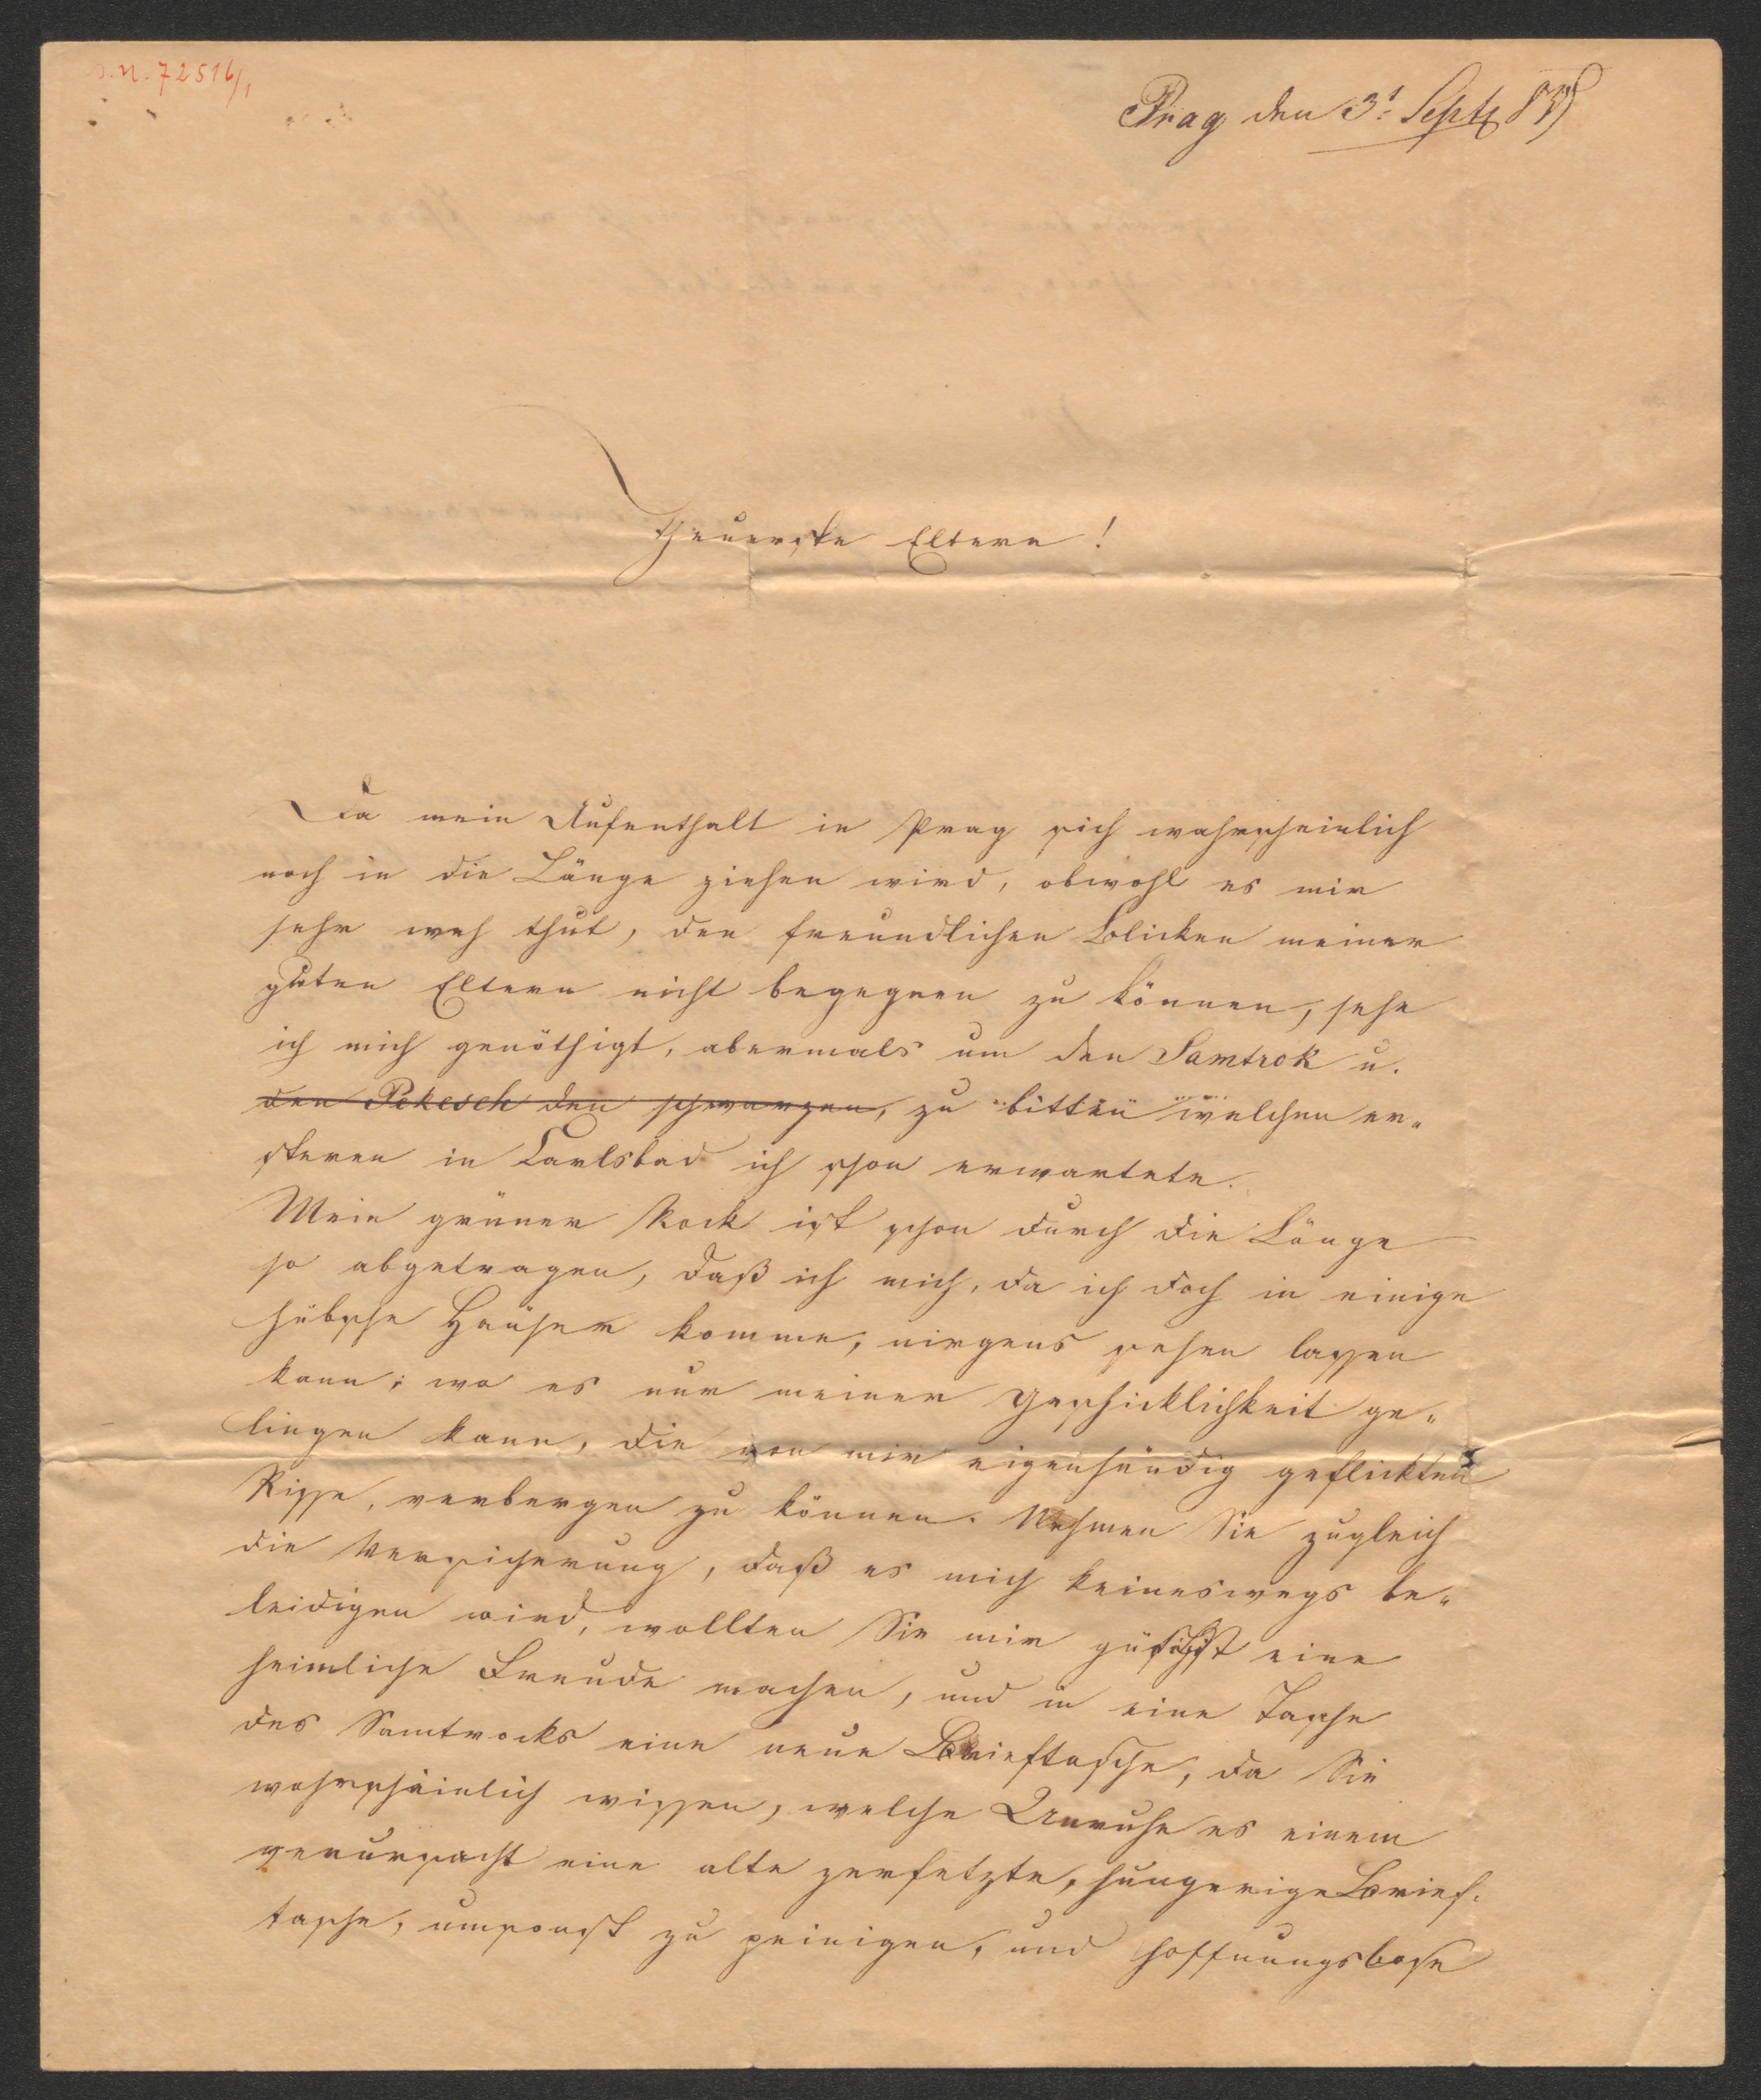 J.N. 72516/1
Prag den 3t Septb 8
Theuerste Eltern!
Da mein Aufenthalt in Prag sich wahrscheinlich
noch in die Länge ziehen wird, obwohl es mir
sehr weh thut, den freundlichen Blicken meiner
guten Eltern nicht begegnen zu können, sehe
ich mich genöthigt, abermals um den Samtrok u.
den Pekesch den schwarzen, zu bitten welchen er„
steren in Carlsbad ich schon erwartete.
Mein grüner Rock ist schon durch die Länge
so abgetragen, daß ich mich, da ich doch in einige
hübsche Häuser komme, nirgens sehen lassen
kann; wo es nur meiner Geschicklichkeit ge„
lingen kann, die von mir eigenhändig geflickten
Risse, verbergen zu können. Nehmen Sie zugleich
die Versicherung, daß es mich keineswegs be„
leidigen wird, wollten Sie mir eine
heimliche Freude machen, und in eine Tasche
des Samtrocks eine neue Brieftasche, da Sie
wahrscheinlich wissen, welche Unruhe es einem
verursacht eine alte zerfetzte, hungerige Brief„
tasche, umsonst zu peinigen, und hoffnungslose